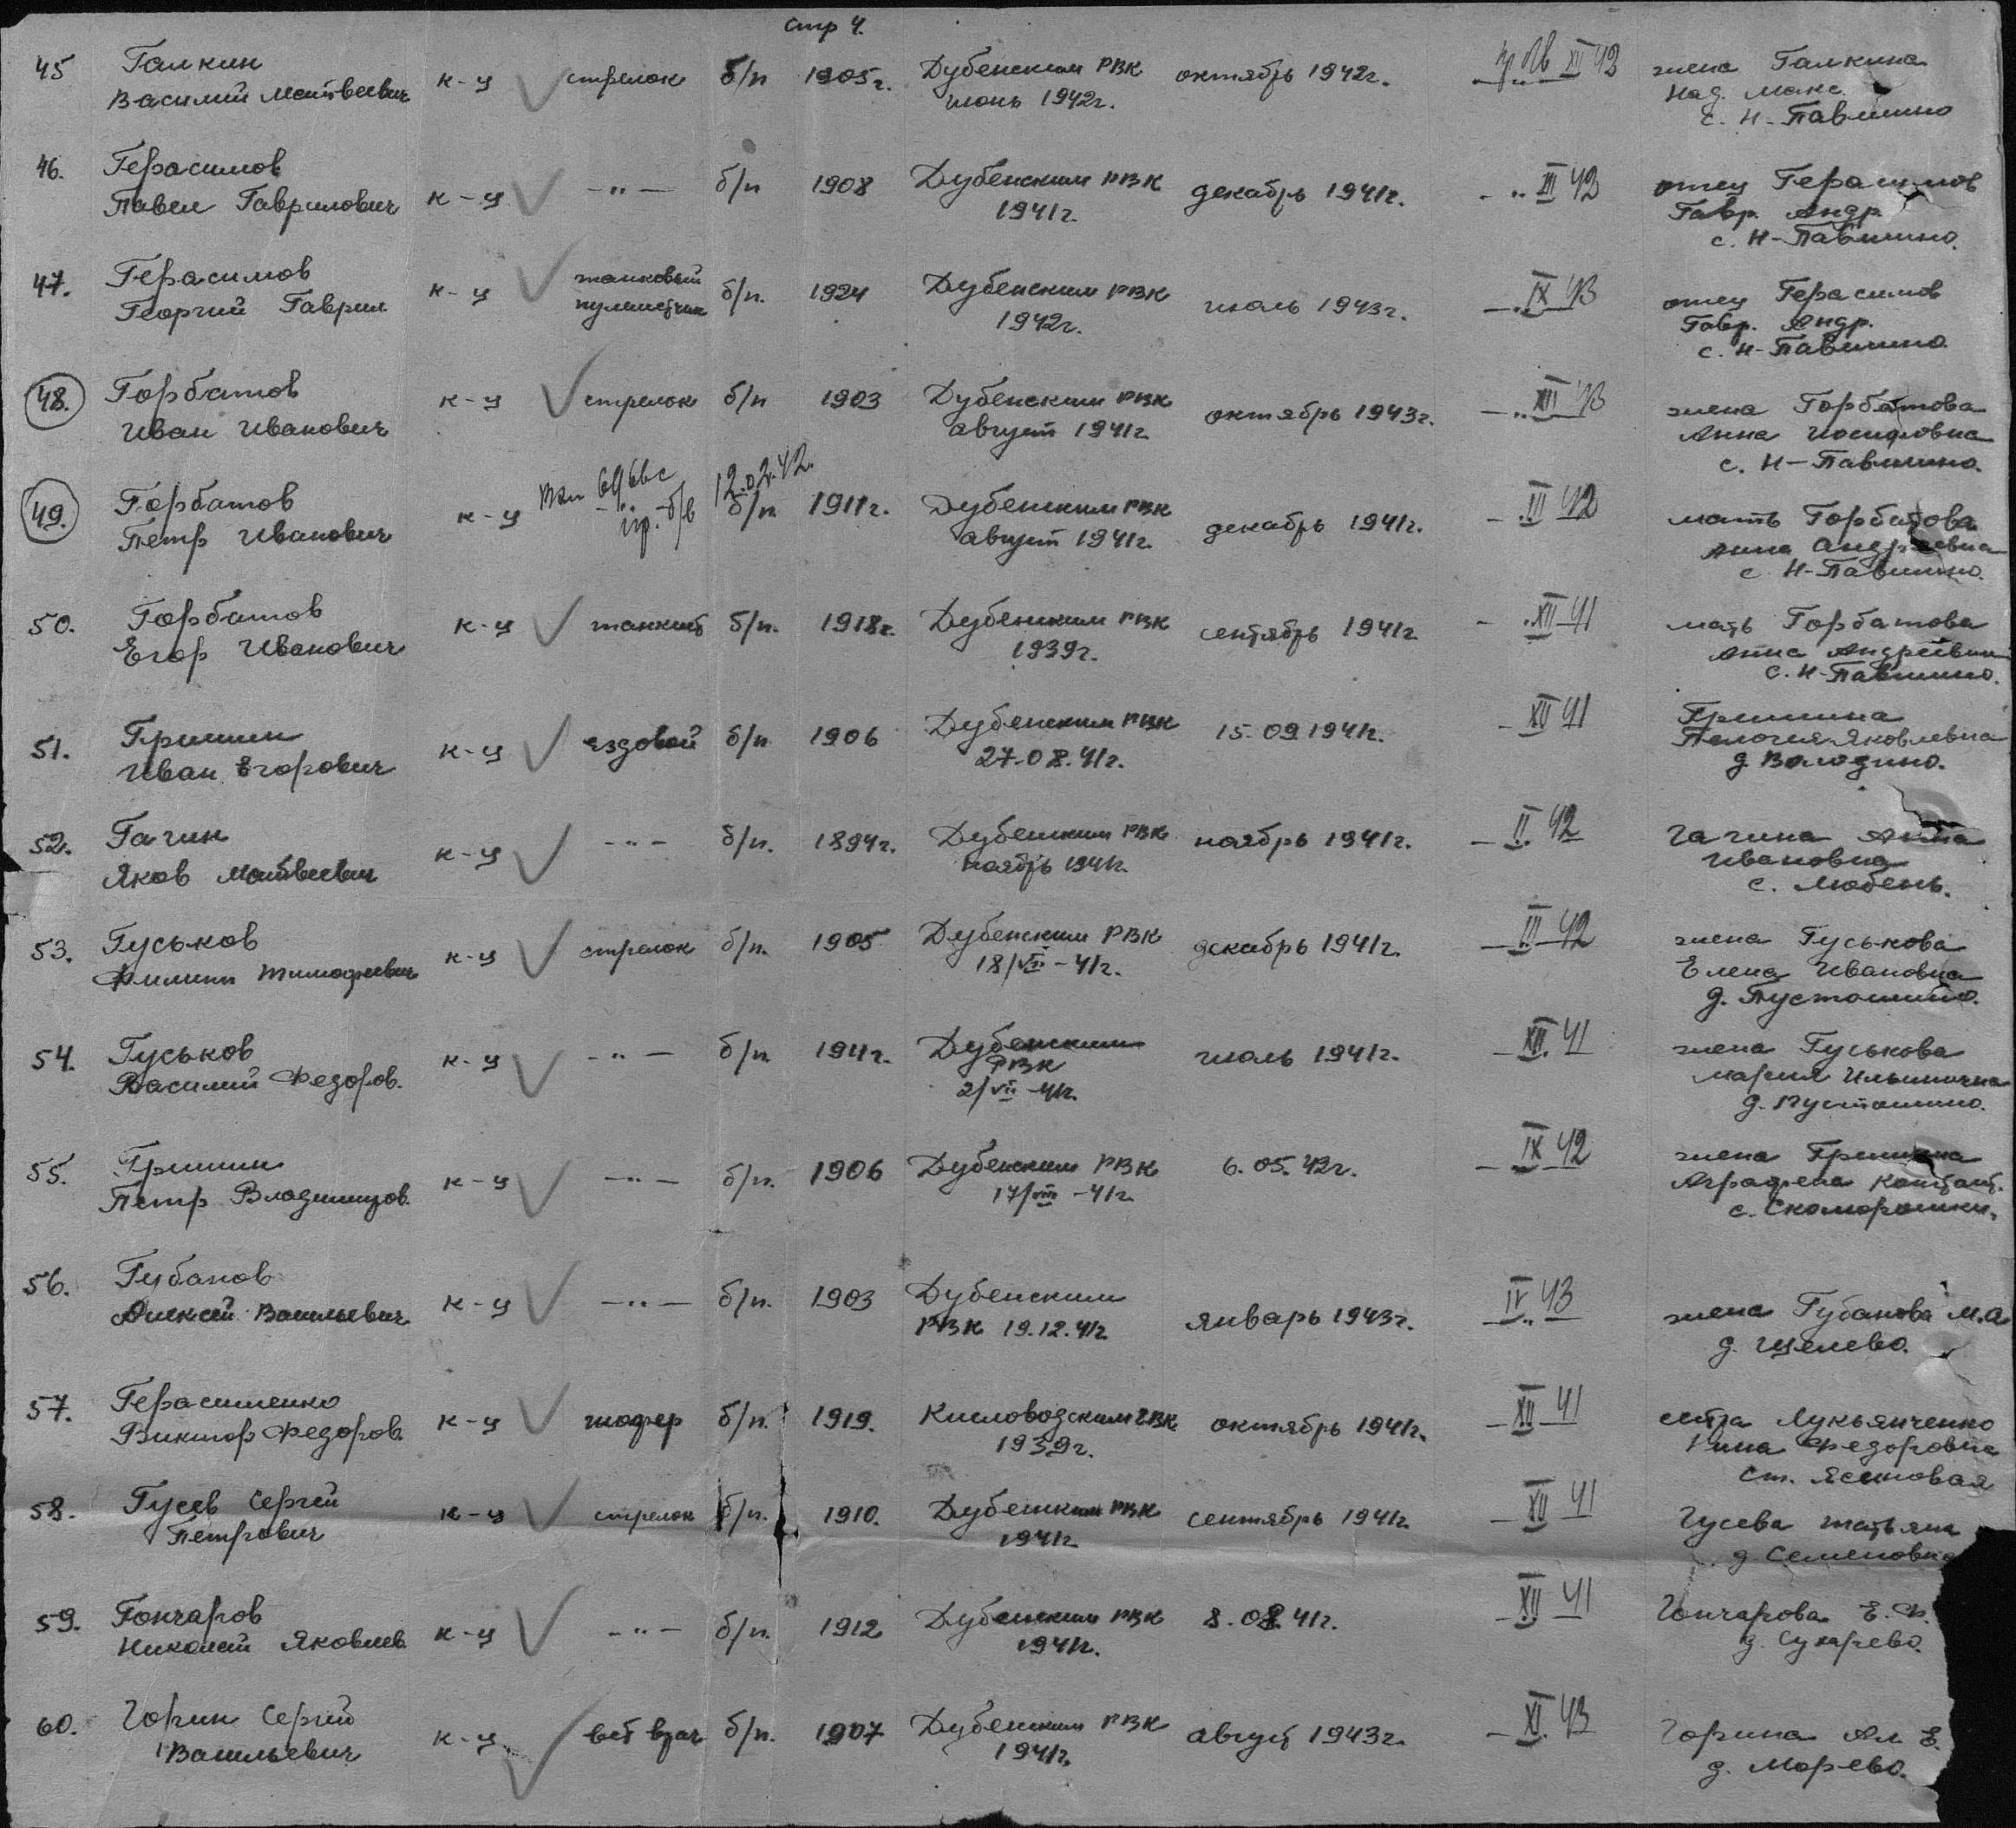 стр 4.
45 Галкин к-ц стрелок б/п 1905г. Дубенским РВК октябрь 1942г. XII 42 жена Галкина
Василий Матвеевич июнь 1942г. Над. Макс.
с. Н-Павшино
46. Герасимов к-ц -"- б/п 1908 Дубенским РВК декабрь 1941г. -"- III 42 отец Герасимов
Павел Гаврилович 1941г. Гавр. Андр.
с. Н-Павшино.
47. Герасимов к-ц танковый б/п. 1924 Дубенским РВК июль 1943г. -"- IX 43 отец Герасимов
Георгий Гаврил. пулеметчик 1942г. Гавр. Андр.
с. Н-Павшино
48. Горбатов к-ц стрелок б/п 1903 Дубенским РВК октябрь 1943г. -"- XII 43 жена Горбатова
Иван Иванович август 1941г. Анна Иосифовна
с. Н-Павшино.
12.02.42.
49. Горбатов к-ц -"- б/п 1911г. Дубенским РВК декабрь 1941г. -"- III 42 мать Горбатова
Петр Иванович пр. б/в август 1941г. Анна Андреевна
с. Н-Павшино.
50. Горбатов к-ц танкист б/п. 1918г. Дубенским РВК сентябрь 1941г - XII 41 мать Горбатова
Егор Иванович 1939г. Анна Андреевна
с. Н-Павшино.
51. Гришин к-ц ездовой б/п 1906 Дубенским РВК 15.09.1941г. - XII 41 Гришина
Иван Егорович 27.08.41г. Пелогея Яковлевна
д. Володино.
52. Гагин к-ц -"- б/п. 1894г. Дубенским РВК ноябрь 1941г. - II. 42 Гагина Анна
Яков Матвеевич ноябрь 1941г. Ивановна
с. Любень.
53. Гуськов к-ц стрелок б/п. 1905 Дубенским РВК декабрь 1941г. - III 42 жена Гуськова
Филипп Тимофеевич 18/VII-41г. Елена Ивановна
д. Пустошино.
54. Гуськов к-ц -"- б/п. 1911г. Дубенским июль 1941г. - XII. 41 жена Гуськова
Василий Федоров. РВК Мария Ильинична
2/VII-41г. д. Пустошино.
55. Гришин к-ц -"- б/п. 1906 Дубенским РВК 6.05.42г. - IX 42 жена Гришина
Петр Владимиров. 17/VIII-41г. Аграфена Констант.
с. Скоморошки.
56. Губанов к-ц -"- б/п. 1903 Дубенским январь 1943г. IV 43 жена Губанова М.А.
Алексей Васильевич РВК 19.12.41г д. Щелево.
57. Герасименко к-ц шофер б/п. 1919. Кисловодским ГВК октябрь 1941г. - XII 41 сестра Лукьянченко
Виктор Федоров. 1939г. Нина Федоровна
ст. Ясеновая
58. Гусев Сергей к-ц стрелок б/п. 1910. Дубенским РВК сентябрь 1941г. - XII 41 Гусева Татьяна
Петрович 1941г д. Семеновка
59. Гончаров к-ц -"- б/п. 1912 Дубенским РВК 8.08.41г. - XII 41 Гончарова Е.Ф.
Николай Яковлев. 1941г. д. Сухарево.
60. Горин Сергей к-ц вет врач б/п. 1907 Дубенским РВК август 1943г. - XI. 43 Горина Ал. Е.
Васильевич 1941г. д. Морево.